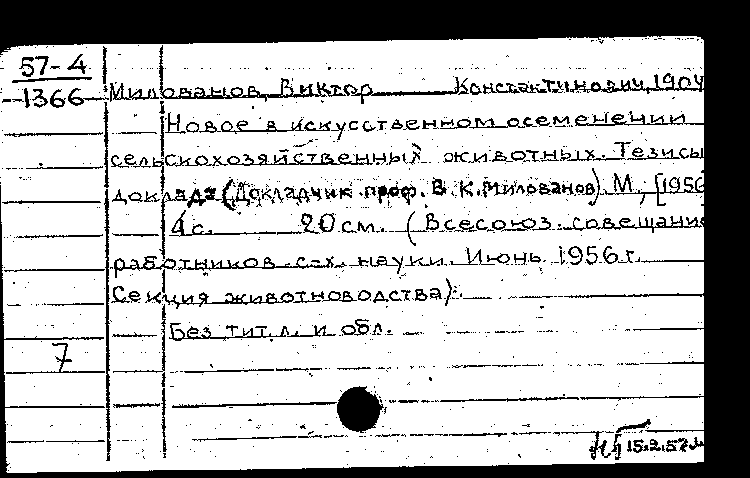 57-4
1366
Милованов, Виктор Константинович, 1904
Новое в искусственном осеменении
сельскохозяйственных животных. Тезисы
доклада (Докладчик проф. В. К. Милованов). М., [1956
4 с. 20 см. (Всесоюз. совещание
работников с.-х. науки. Июнь 1956 г.
Секция животноводства).
Без тит. л. и обл.
7
15.2.57